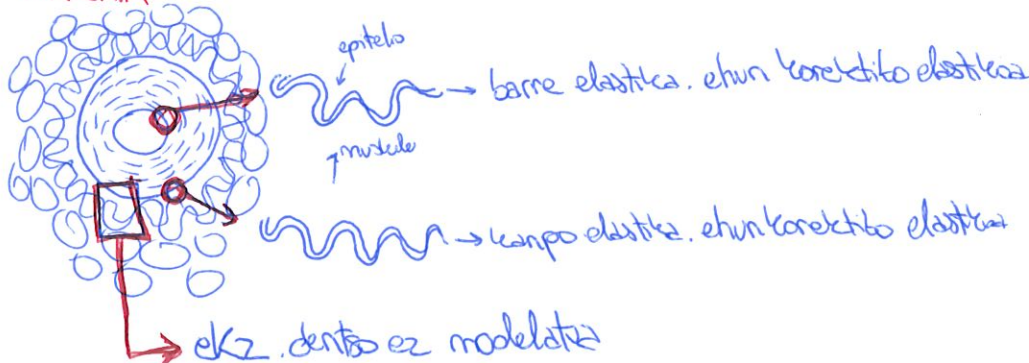 epitelio
→ barne elastika. ehun konektibo elastikoa
muskulo
→ kanpo elastika. ehun konektibo elastikoa
→ eKZ. dentso ez modelatua